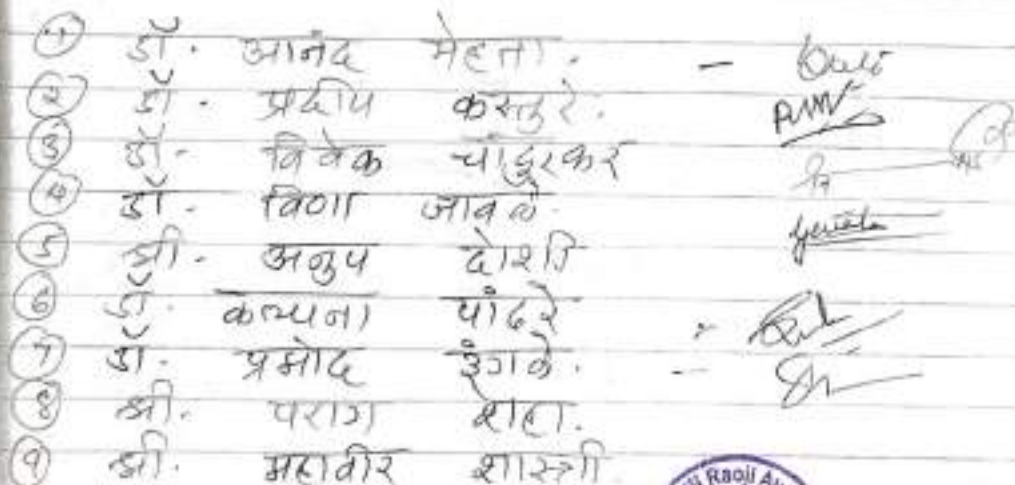 ① डॉ. आनंद मेहता. -
② डॉ. प्रदीप कस्तुरे.
③ डॉ. विवेक चांदुरकर
④ डॉ. विणा जावळे.
⑤ श्री. अनुप दोशी
⑥ डॉ. कल्पना पांढरे
⑦ डॉ. प्रमोद इंगळे. -
⑧ श्री. पराग शहा.
⑨ श्री. महावीर शास्त्री
Raoji